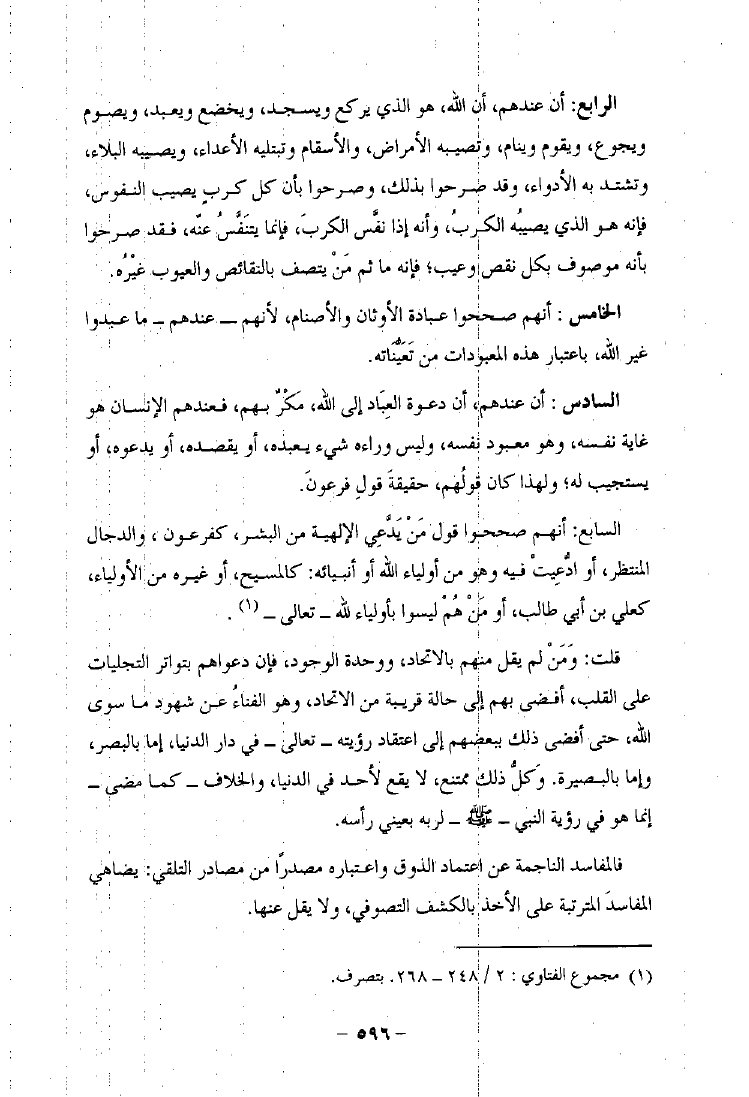 الرابع: أن عندهم، أن الله، هو الذي يركع ويسجد، ويخضع ويعبد، ويصوم
ويجوع، ويقوم وينام، وتصيبه الأمراض، والأسقام وتبتليه الأعداء، ويصيبه البلاء،
وتشتد به الأدواء، وقد صرحوا بذلك، وصرحوا بأن كل كربٍ يصيب النفوس،
فإنه هو الذي يصيبُه الكربُ، وأنه إذا نفَّس الكربَ، فإنما يتنَفَّسُ عنّه، فقد صرحوا
بأنه موصوف بكل نقص وعيب؛ فإنه ما ثم مَنْ يتصف بالنقائص والعيوب غيْرُه.
الخامس : أنهم صححوا عبادة الأوثان والأصنام، لأنهم ــ عندهم ــ ما عبدوا
غير الله، باعتبار هذه المعبودات من تَعَيُّنَاته.
السادس : أن عندهم، أن دعوة العِبَاد إلى الله، مَكْرٌ بهم، فعندهم الإنسان هو
غاية نفسه، وهو معبود نفسه، وليس وراءه شيء يعبده، أو يقصده، أو يدعوه، أو
يستجيب له؛ ولهذا كان قولُهم، حقيقةَ قولِ فرعونَ.
السابع: أنهم صححوا قول مَنْ يَدَّعِي الإلهية من البشر، كفرعون ، والدجال
المنتظر، أو ادُّعِيتْ فيه وهو من أولياء الله أو أنبيائه: كالمسيح، أو غيره من الأولياء،
كعلي بن أبي طالب، أو مَنْ هُمْ ليسوا بأولياء لله ــ تعالى ــ (١) .
قلت: وَمَنْ لم يقل منهم بالاتحاد، ووحدة الوجود، فإن دعواهم بتواتر التجليات
على القلب، أفضى بهم إلى حالة قريبة من الاتحاد، وهو الفناءُ عن شهود ما سوى
الله، حتى أفضى ذلك ببعضهم إلى اعتقاد رؤيته ــ تعالى ــ في دار الدنيا، إما بالبصر،
وإما بالبصيرة. وَكلُّ ذلك ممتنع، لا يقع لأحد في الدنيا، والخلاف ــ كما مضى ــ
إنما هو في رؤية النبي ــ ﷺ ــ لربه بعيني رأسه.
فالمفاسد الناجمة عن اعتماد الذوق واعتباره مصدرًا من مصادر التلقي: يضاهي
المفاسدَ المترتبة على الأخذ بالكشف التصوفي، ولا يقل عنها.
(١) مجموع الفتاوي : ٢ / ٢٤٨ ــ ٢٦٨. بتصرف.
– ٥٩٦ –